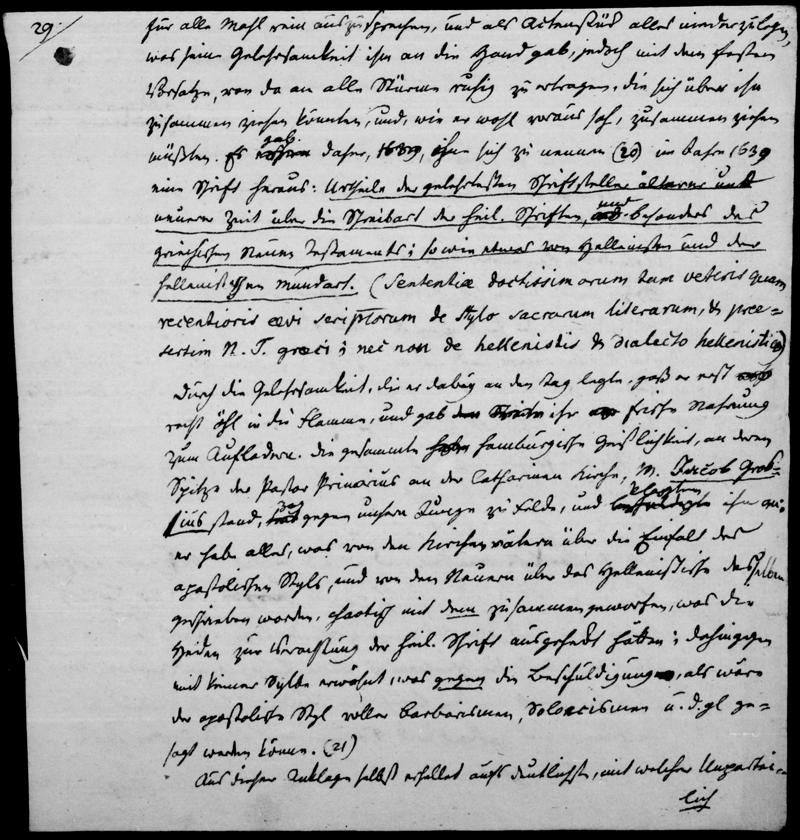 29.
für alle Mahl rein auszusprechen, und als Actenstück alles niederzulegen,
was seine Gelehrsamkeit ihm an die Hand gab, jedoch mit dem festen
Vorsatze, von da an alle Stürme ruhig zu ertragen, die sich über ihn
zusammen ziehen könnten, und, wie er wohl voraus sah, zusammen ziehen
müßten. Er gab daher, 1639, ohne sich zu nennen (20) im Jahre 1639
eine Schrift heraus: Urtheile der gelehrtesten Schriftsteller älterer und
neuerer Zeit über die Schreibart der heil. Schriften, und besonders des
griechischen Neuen Testaments; so wie etwas von Hellenisten und der
hellenistischen Mundart. (Sententiæ doctissimorum tum veteris quam
recentioris ævi scriptorum de stylo sacrarum literarum, & præ=
sertim N. T. græci; nec non de hellenistis & dialecto hellenistica)
Durch die Gelehrsamkeit, die er dabey an den Tag legte, goß er erst
recht Öhl in die Flamme, und gab ihr frische Nahrung
zum Auflodern. Die gesammte hamburgische Geistlichkeit, an deren
Spitze der Pastor Primarius an der Catharinen Kirche, M. Jacob Gros=
sius stand, zog gegen unsern Junge zu Felde, und klagten ihn an:
er habe alles, was von den Kirchenvätern über die Einfalt des
apostolischen Styls, und von den Neuern über das Hellenistische desselben
geschrieben worden, chaotisch mit dem zusammengeworfen, was die
Heiden zur Verachtung der heil. Schrift ausgeheckt hätten; dahingegen
mit keiner Sylbe erwähnt, was gegen die Beschuldigungen, als wäre
der apostolische Styl voller Barbarismen, Soloecismen u. d. gl. ge=
sagt werden könne. (21)
Aus dieser Anklage selbst erhellet aufs deutlichste, mit welcher Unpartei=
lich